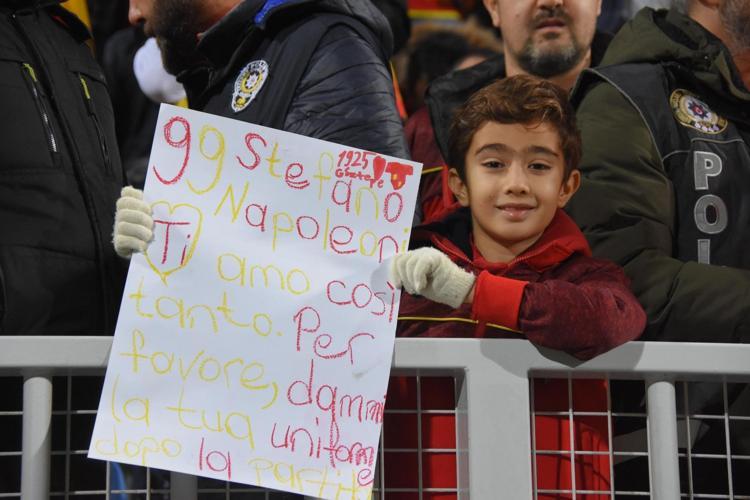 99 Stefano
1925
Göztepe
Napoleoni
Ti amo così
tanto. Per
favore, dammi
la tua uniforme
dopo la partita
POL